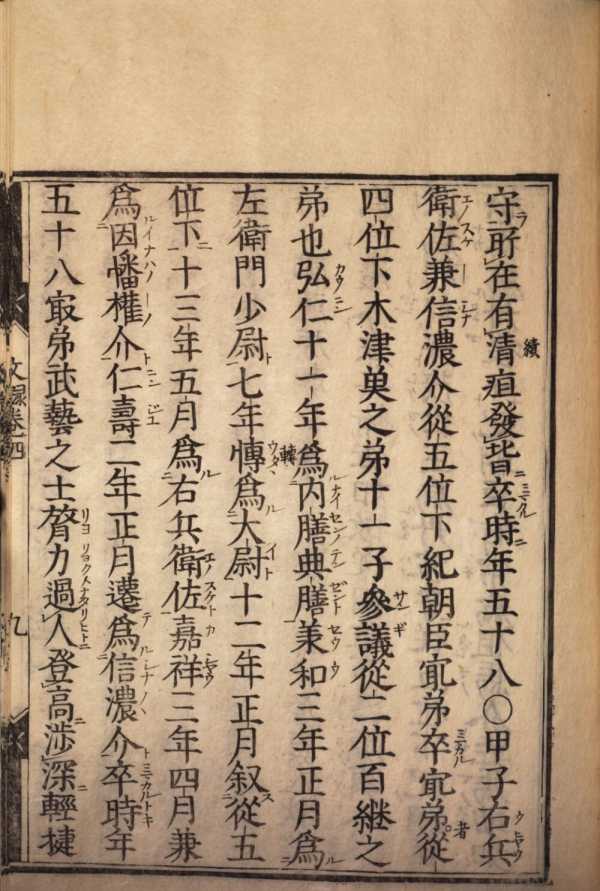 守所在有清疽發皆卒時年五十八〇甲子右兵
績
衛佐兼信濃介從五位下紀朝臣冣弟卒冣弟從
者
四位下木津菓之弟十一子參議從二位百繼之
弟也弘仁十一年爲内膳典膳兼和三年正月爲
左衛門少尉七年慱爲大尉十二年正月叙從五
轉
位下十三年五月爲右兵衛佐嘉祥三年四月兼
爲因幡權介仁壽二年正月遷爲信濃介卒時年
五十八冣弟武藝之士膂力過人登高渉深輕揵
卷四
九